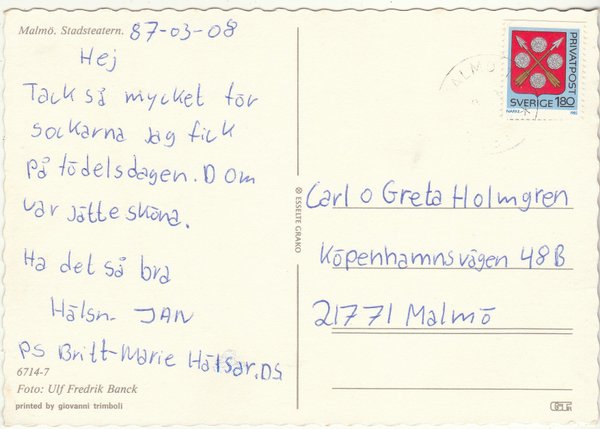 Malmö. Stadsteatern. 87-03-08
Hej
Tack så mycket för
sockarna jag fick
på födelsdagen. Dom
var jätte sköna.
Ha det så bra
Hälsn. JAN
PS Britt-Marie Hälsar. DS
6714-7
Foto: Ulf Fredrik Banck
printed by giovanni trimboli
ESSELTE GRAKO
PRIVATPOST
SVERIGE 180
MALMÖ
Carl o Greta Holmgren
Köpenhamnsvägen 48B
21771 Malmö